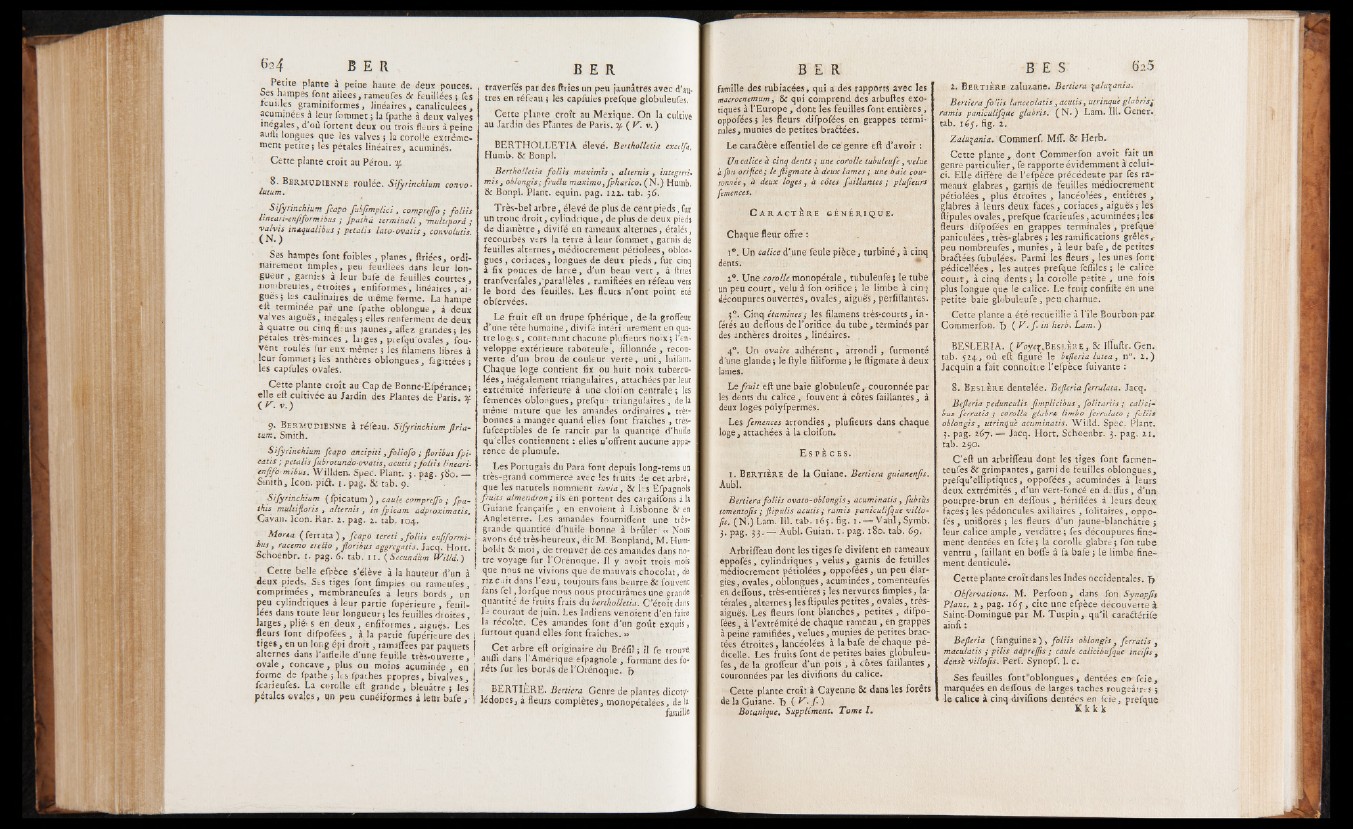 624 BER
Petite plante à peine haute de deux pouces.
Ses hampes sont ailées, rameuses & feuillées ; ses
feuilles graminiformes, linéaires, canaliculées,
acuminées à leur sommet ; la spathe à deux valves
inégales, d'où sortent deux ou trois fleurs à peine
aussi longues que les valves ; la corolle extrême-
ment petite ; les pétales linéaires, acuminés.
Cette plante croît au Pérou. ♃
8. BERMUDIENNE roulée. Sisyrinchium convo-
lutum.
Sisyrinchium scapo subsimplici, compresso ; foliis
lineari-ensiformibus ; spathâ terminali, multiparâ ;
valvis inæqualibus ; petalis lato-ovatis, convolutis.
(N.)
Ses hampes sont foibles, planes, striées, ordi-
nairement simples, peu feuillées dans leur lon-
gueur, garnies à leur base de feuilles courtes,
nombreuses, étroites, ensiformes, linéaires, ai-
guës ; les caulinaires de même forme. La hampe
est terminée par une spathe oblongue, à deux
valves aiguës, inégales ; elles renferment de deux
à quatre ou cinq fleurs jaunes, assez grandes ; les
pétales très-minces, larges, presqu'ovales, sou-
vent roulés sur eux même ; les filamens libres à
leur sommet ; les anthères oblongues, sagittées ;
les capsules ovales.
Cette plante croît au Cap de Bonne-Espérance ;
elle est cultivée au Jardin des Plantes de Paris. ♃
(V. v.)
9. BERMUDIENNE à réseau. Sisyrinchium stria-
tum. Smith.
Sisyrinchium scapo ancipiti, folioso ; floribus spi-
catis ; petalis subrotundo-ovatis, acutis ; foliis lineari-
ensiformibus. Willden. Spec. Plant. 3. pag. 580. —
Smith, Icon. pict. 1. pag. & tab. 9.
Sisyrinchium (spicatum), caule compresso ; spa-
this multifloris, alternis, in spicam adproximatis.
Cavan. Icon. Rar. 2. pag. 2. tab. 104.
Moræa (serrata), scapo tereti, foliis ensiformi-
bus, racemo erecto, floribus aggregatis. Jacq. Hort.
Schoenbr. 1. pag. 6. tab. 11. (Secundùm Willd.)
Cette belle espèce s'élève à la hauteur d'un à
deux pieds. Ses tiges sont simples ou rameuses,
comprimées, membraneuses à leurs bords, un
peu cylindriques à leur partie supérieure, feuil-
lées dans toute leur longueur ; les feuilles droites,
larges, pliées en deux, ensiformes, aiguës. Les
fleurs sont disposées, à la partie supérieure des
tiges, en un long épi droit, ramassées par paquets
alternes dans l'aisselle d'une feuille très-ouverte,
ovale, concave, plus ou moins acuminée, en
forme de spathe ; les spathes propres, bivalves,
scarieuses. La corolle est grande, bleuâtre ; les
pétales ovales, un peu cunéiformes à leur base,
BER
traversés par des stries un peu jaunâtres avec d'au-
tres en réseau ; les capsules presque globuleuses.
Cette plante croît au Mexique. On la cultive
au Jardin des Plantes de Paris. ♃ (V. v.)
BERTHOLLETIA élevé. Bertholletia excelsa.
Humb. & Bonpl.
Bertholletia foliis maximis, alternis, integerri-
mis, oblongis ; fructu maximo, sphærico. (N.) Humb.
& Bonpl. Plant. equin. pag. 122. tab. 36.
Très-bel arbre, élevé de plus de cent pieds, sur
un tronc droit, cylindrique, de plus de deux pieds
de diamètre, divisé en rameaux alternes, étalés,
recourbés vers la terre à leur sommet, garnis de
feuilles alternes, médiocrement pétiolées, oblon-
gues, coriaces, longues de deux pieds, sur cinq
à six pouces de large, d'un beau vert, à stries
transversales, parallèles, ramifiées en réseau vers
le bord des feuilles. Les fleurs n'ont point été
observées.
Le fruit est un drupe sphérique, de la grosseur
d'une tête humaine, divisé intérieurement en qua-
tre loges, contenant chacune plusieurs noix ; l'en-
veloppe extérieure raboteuse, sillonnée, recou-
verte d'un brou de couleur verte, uni, luisant.
Chaque loge contient six ou huit noix tubercu-
lées, inégalement triangulaires, attachées par leur
extrémité inférieure à une cloison centrale ; les
semences oblongues, presque triangulaires, de la
même nature que les amandes ordinaires, très-
bonnes à manger quand elles sont fraîches, très-
susceptibles de se rancir par la quantité d'huile
qu'elles contiennent : elles n'offrent aucune appa-
rence de plumule.
Les Portugais du Para font depuis long-tems un
très-grand commerce avec les fruits de cet arbre,
que les naturels nomment iuvia, & les Espagnols
fruits almendron ; ils en portent des cargaisons à la
Guiane française, en envoient à Lisbonne & en
Angleterre. Les amandes fournissent une très-
grande quantité d'huile bonne à brûler. « Nous
avons été très-heureux, dit M. Bonpland, M. Hum-
boldt & moi, de trouver de ces amandes dans no-
tre voyage sur l'Orénoque. Il y avoit trois mois
que nous ne vivions que de mauvais chocolat, de
riz cuit dans l'eau, toujours sans beurre & souvent
sans sel, lorsque nous nous procurâmes une grande
quantité de fruits frais du bertholletia. C'étoit dans
le courant de juin. Les Indiens venoient d'en faire
la récolte. Ces amandes sont d'un goût exquis,
surtout quand elles sont fraîches. »
Cet arbre est originaire du Brésil ; il se trouve
aussi dans l'Amérique espagnole, formant des fo-
rêts sur les bords de l'Orénoque. ♄
BERTIÈRE. Bertiera. Genre de plantes dicoty-
lédones, à fleurs complètes, monopétalées, de la
famille
BER
famille des rubiacées, qui a des rapports avec les
macrocnemum, & qui comprend des arbustes exo-
tiques à l'Europe, dont les feuilles sont entières,
opposées ; les fleurs disposées en grappes termi-
nales, munies de petites bractées.
Le caractère essentiel de ce genre est d'avoir :
Un calice à cinq dents ; une corolle tubuleuse, velue
à son orifice ; le stigmate à deux lames ; une baie cou-
ronnée, à deux loges, à côtes saillantes ; plusieurs
semences.
CARACTÈRE GÉNÉRIQUE.
Chaque fleur offre :
1°. Un calice d'une seule pièce, turbiné, à cinq
dents.
2°. Une corolle monopétale, tubuleuse ; le tube
un peu court, velu à son orifice ; le limbe à cinq
découpures ouvertes, ovales, aiguës, persistantes.
3°. Cinq étamines ; les filamens très-courts, in-
sérés au dessous de l'orifice du tube, terminés par
des anthères droites, linéaires.
4°. Un ovaire adhérent, arrondi, surmonté
d'une glande ; le style filiforme ; le stigmate à deux
lames.
Le fruit est une baie globuleuse, couronnée par
les dents du calice, souvent à côtes saillantes, à
deux loges polyspermes.
Les semences arrondies, plusieurs dans chaque
loge, attachées à la cloison.
ESPÈCES.
1. BERTIÈRE de la Guiane. Bertiera guianensis.
Aubl.
Bertiera foliis ovato-oblongis, acuminatis, subtùs
tomentosis ; stipulis acutis ; ramis paniculisque villo-
sis. (N.) Lam. Ill. tab. 165. fig. 1. — Vahl, Symb.
3. pag. 33. — Aubl. Guian. 1. pag. 180. tab. 69.
Arbrisseau dont les tiges se divisent en rameaux
opposés, cylindriques, velus, garnis de feuilles
médiocrement pétiolées, opposées, un peu élar-
gies, ovales, oblongues, acuminées, tomenteuses
en dessous, très-entières ; les nervures simples, la-
térales, alternes ; les stipules petites, ovales, très-
aiguës. Les fleurs sont blanches, petites, dispo-
sées, à l'extrémité de chaque rameau, en grappes
à peine ramifiées, velues, munies de petites brac-
tées étroites, lancéolées à la base de chaque pé-
dicelle. Les fruits sont de petites baies globuleu-
ses, de la grosseur d'un pois, à côtes saillantes,
couronnées par les divisions du calice.
Cette plante croît à Cayenne & dans les forêts
de la Guiane. ♄ (V. s.)
Botanique. Supplément. Tome I.
BES 625
2. BERTIÈRE zaluzane. Bertiera zaluzania.
Bertiera foliis lanceolatis, acutis, utrinquè glabris ;
ramis paniculisque glabris. (N.) Lam. Ill. Gener.
tab. 165. fig. 2.
Zaluzania. Commers. Mss. & Herb.
Cette plante, dont Commerson avoit fait un
genre particulier, se rapporte évidemment à celui-
ci. Elle diffère de l'espèce précédente par ses ra-
meaux glabres, garnis de feuilles médiocrement
pétiolées, plus étroites, lancéolées, entières,
glabres à leurs deux faces, coriaces, aiguës ; les
stipules ovales, presque scarieuses, acuminées ; les
fleurs disposées en grappes terminales, presque
paniculées, très-glabres ; les ramifications grêles,
peu nombreuses, munies, à leur base, de petites
bractées subulées. Parmi les fleurs, les unes sont
pédicellées, les autres presque sessiles ; le calice
court, à cinq dents ; la corolle petite, une fois
plus longue que le calice. Le fruit consiste en une
petite baie globuleuse, peu charnue.
Cette plante a été recueillie à l'île Bourbon par
Commerson. ♄ (V. s. in herb. Lam.)
BESLERIA. (Voyez BESLÈRE, & Illustr. Gen.
tab. 524, où est figuré le besleria lutea, n°. 2.)
Jacquin a fait connoître l'espèce suivante :
8. BESLÈRE dentelée. Besleria serrulata. Jacq.
Besleria pedunculis simplicibus, solitariis ; calici-
bus serratis ; corollâ glabrâ limbo serrulato ; foliis
oblongis, utrinquè acuminatis. Willd. Spec. Plant.
3. pag. 267. — Jacq. Hort. Schoenbr. 3. pag. 21.
tab. 290.
C'est un arbrisseau dont les tiges sont sarmen-
teuses & grimpantes, garni de feuilles oblongues,
presqu'elliptiques, opposées, acuminées à leurs
deux extrémités, d'un vert-foncé en dessus, d'un
pourpre-brun en dessous, hérissées à leurs deux
faces ; les pédoncules axillaires, solitaires, oppo-
sés, uniflores ; les fleurs d'un jaune-blanchâtre ;
leur calice ample, verdâtre ; ses découpures fine-
ment dentées en scie ; la corolle glabre ; son tube
ventru, saillant en bosse à sa base ; le limbe fine-
ment denticulé.
Cette plante croît dans les Indes occidentales. ♄
Observations. M. Persoon, dans son Synopsis
Plant. 2, pag. 165, cite une espèce découverte à
Saint-Domingue par M. Turpin, qu'il caractérise
ainsi :
Besleria (sanguinea), foliis oblongis, serratis,
maculatis ; pilis adpressis ; caule calicibusque incisis,
densè villosis. Pers. Synops. l. c.
Ses feuilles sont oblongues, dentées en scie,
marquées en dessous de larges taches rougeâtres ;
le calice à cinq divisions dentées en scie, presque
Kkkk